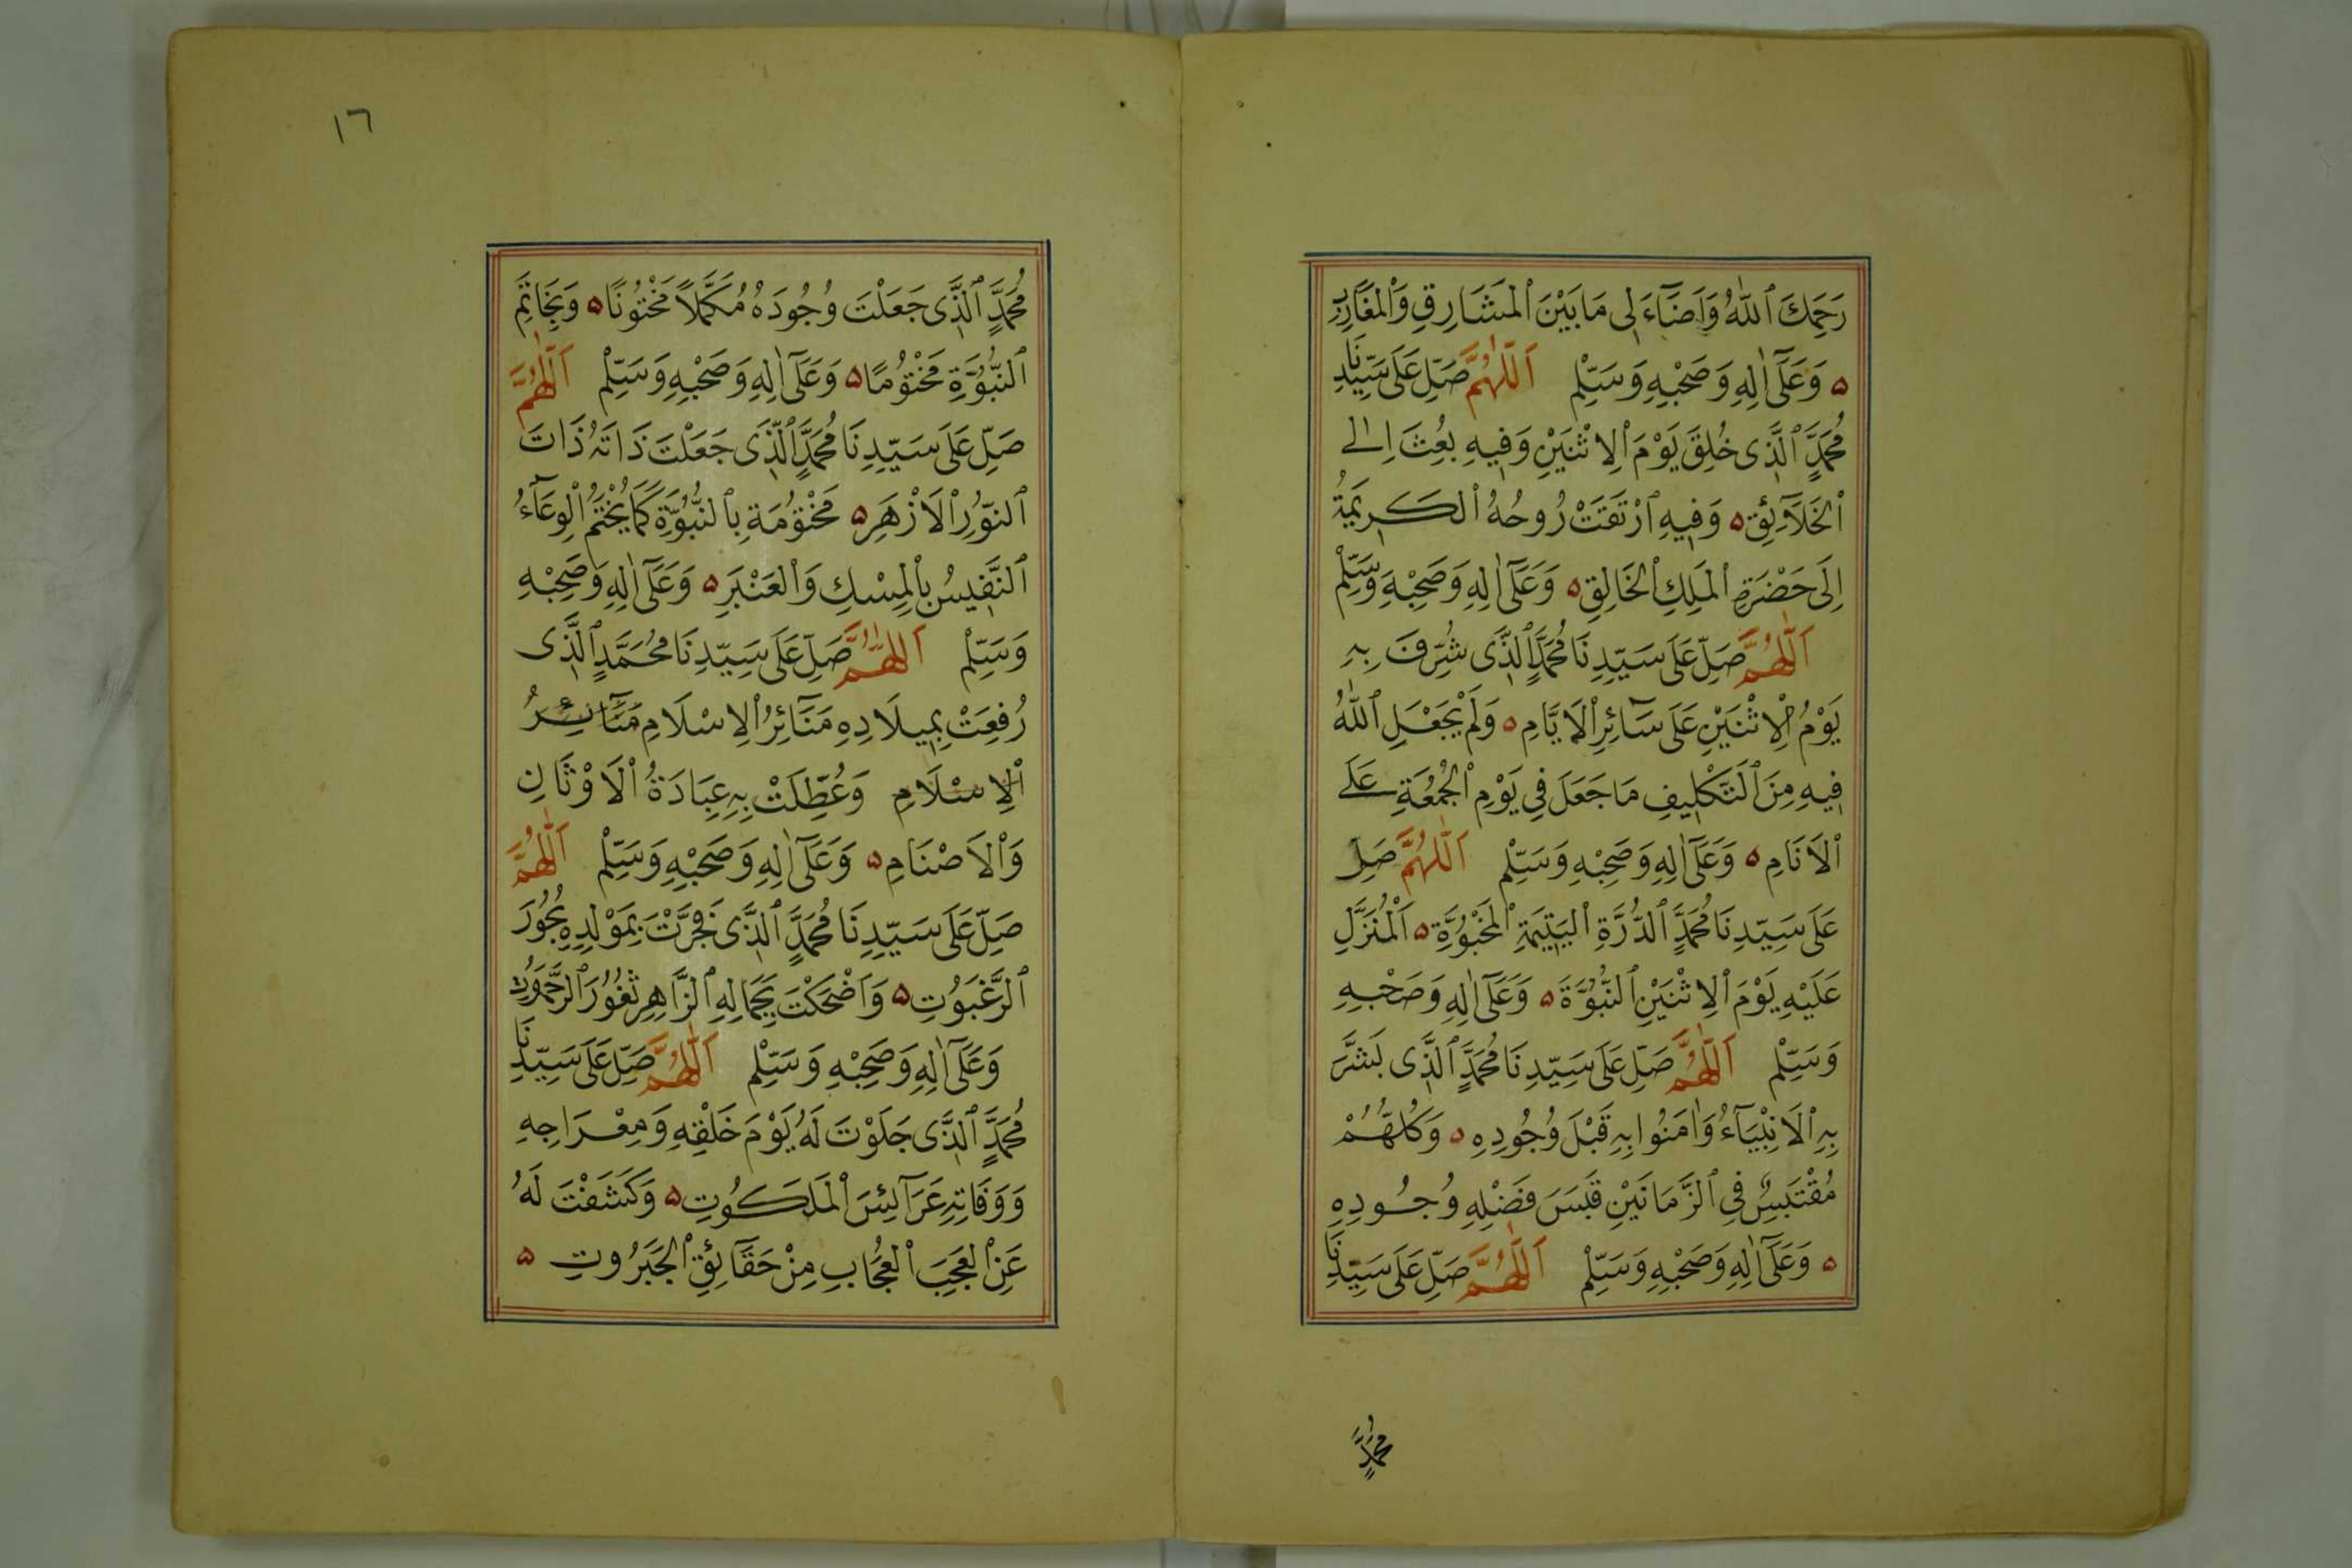 رَحِمَكَ ٱللّٰهُ وَاَضَآءَ لِى مَا بَيْنَ ٱلْمَشَارِقِ وَٱلْمَغَارِبِ
۵ وَعَلَىٰٓ اٰلِهِ وَصَحْبِهِ وَسَلِّمْ اَللّٰهُمَّ صَلِّ عَلَى سَيِّدِنَا
مُحَمَّدٍ ٱلَّذِى خُلِقَ يَوْمَ ٱلْاِثْنَيْنِ وَفِيهِ بُعِثَ اِلٰى
ٱلْخَلَآئِقِ ۵ وَفِيهِ ٱرْتَقَتْ رُوحُهُ ٱلْكَرِيمَةُ
اِلَى حَضْرَةِ ٱلْمَلِكِ ٱلْخَالِقِ ۵ وَعَلَىٰٓ اٰلِهِ وَصَحْبِهِ وَسَلِّمْ
اَللّٰهُمَّ صَلِّ عَلَى سَيِّدِنَا مُحَمَّدٍ ٱلَّذِى شُرِّفَ بِهِ
يَوْمُ ٱلْاِثْنَيْنِ عَلَى سَآئِرِ ٱلْاَيَّامِ ۵ وَلَمْ يَجْعَلِ ٱللّٰهُ
فِيهِ مِنَ ٱلتَّكْلِيفِ مَا جَعَلَ فِى يَوْمِ ٱلْجُمُعَةِ عَلَى
ٱلْاَنَامِ ۵ وَعَلَىٰٓ اٰلِهِ وَصَحْبِهِ وَسَلِّمْ اَللّٰهُمَّ صَلِّ
عَلَى سَيِّدِنَا مُحَمَّدٍ ٱلدُّرَّةِ ٱلْيَتِيمَةِ ٱلْمَخْبُوَّةِ ۵ اَلْمُنَزَّلِ
عَلَيْهِ يَوْمَ ٱلْاِثْنَيْنِ ٱلنُّبُوَّةَ ۵ وَعَلَىٰٓ اٰلِهِ وَصَحْبِهِ
وَسَلِّمْ اَللّٰهُمَّ صَلِّ عَلَى سَيِّدِنَا مُحَمَّدٍ ٱلَّذِى بَشَّرَ
بِهِ ٱلْاَنْبِيَآءُ وَاٰمَنُوا بِهِ قَبْلَ وُجُودِهِ ۵ وَكُلُّهُمْ
مُقْتَبِسٌ فِى ٱلزَّمَانَيْنِ قَبَسَ فَضْلِهِ وُجُودِهِ
۵ وَعَلَىٰٓ اٰلِهِ وَصَحْبِهِ وَسَلِّمْ اَللّٰهُمَّ صَلِّ عَلَى سَيِّدِنَا
مُحَمَّدٍ
١٦
مُحَمَّدٍ ٱلَّذِى جَعَلْتَ وُجُودَهُ مُكَمَّلًا مَخْتُونًا ۵ وَبِخَاتَمِ
ٱلنُّبُوَّةِ مَخْتُومًا ۵ وَعَلَىٰٓ اٰلِهِ وَصَحْبِهِ وَسَلِّمْ اَللّٰهُمَّ
صَلِّ عَلَى سَيِّدِنَا مُحَمَّدٍ ٱلَّذِى جَعَلْتَ ذَاتَهُ ذَاتَ
ٱلنُّورِ ٱلْاَزْهَرِ ۵ مَخْتُومَةً بِٱلنُّبُوَّةِ كَمَا يُخْتَمُ ٱلْوِعَآءُ
ٱلنَّفِيسُ بِٱلْمِسْكِ وَٱلْعَنْبَرِ ۵ وَعَلَىٰٓ اٰلِهِ وَصَحْبِهِ
وَسَلِّمْ اَللّٰهُمَّ صَلِّ عَلَى سَيِّدِنَا مُحَمَّدٍ ٱلَّذِى
رُفِعَتْ بِمِيلَادِهِ مَنَآئِرُ ٱلْاِسْلَامِ مَنَآئِرُ
ٱلْاِسْلَامِ وَعُطِّلَتْ بِهِ عِبَادَةُ ٱلْاَوْثَانِ
وَٱلْاَصْنَامِ ۵ وَعَلَىٰٓ اٰلِهِ وَصَحْبِهِ وَسَلِّمْ اَللّٰهُمَّ
صَلِّ عَلَى سَيِّدِنَا مُحَمَّدٍ ٱلَّذِى فَجَّرْتَ بِمَوْلِدِهِ بُحُورَ
ٱلرَّغَبُوتِ ۵ وَاَضْحَكْتَ بِجَمَالِهِ ٱلزَّاهِرِ ثُغُورَ ٱلرَّحَمُوتِ
وَعَلَىٰٓ اٰلِهِ وَصَحْبِهِ وَسَلِّمْ اَللّٰهُمَّ صَلِّ عَلَى سَيِّدِنَا
مُحَمَّدٍ ٱلَّذِى جَلَوْتَ لَهُ يَوْمَ خَلْقِهِ وَمِعْرَاجِهِ
وَوَفَاتِهِ عَرَآئِسَ ٱلْمَلَكُوتِ ۵ وَكَشَفْتَ لَهُ
عَنِ ٱلْعَجَبِ ٱلْعُجَابِ مِنْ حَقَآئِقِ ٱلْجَبَرُوتِ ۵